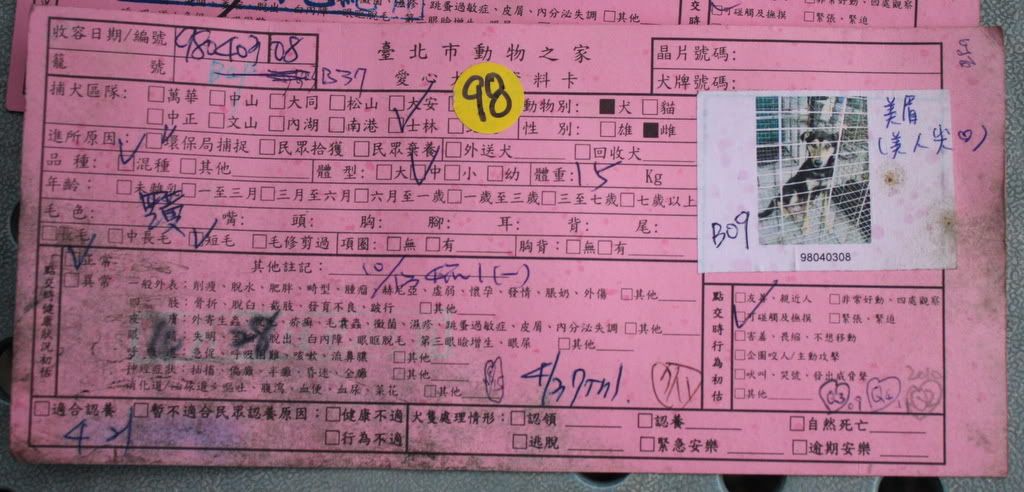 跳蚤過敏症、皮屑、內分泌失調 □其他
可碰觸及撫摸 □緊張、緊迫
收容日期/編號 980403 08
臺北市動物之家
晶片號碼:
籠 號 B37
愛心 料卡
犬牌號碼:
捕犬區隊: □萬華 □中山 □大同 □松山 □大安
98
動物別: ■犬 □貓
□中正 □文山 □內湖 □南港 □士林
性 別: □雄 ■雌
美眉
(美人尖♡)
進所原因: □環保局捕捉 □民眾拾獲 □民眾棄養 □外送犬 □回收犬
品 種: □混種 □其他 體 型: □大 □中 □小 □幼 體重: 15 Kg
年齡: □未離乳 □一至三月 □三月至六月 □六月至一歲 □一歲至三歲 □三至七歲 □七歲以上
毛 色: 黑黃 嘴: 頭: 胸: 腳: 耳: 背: 尾:
B09
□長毛 □中長毛 □短毛 □毛修剪過 項圈: □無 □有 胸背: □無 □有
98040308
點交時健康狀況初估
□正常 其他註記:
□異常 一般外表: 削瘦、脫水、肥胖、畸型、腫瘤、赫尼亞、虛弱、懷孕、發情、脹奶、外傷 □其他
四 肢: 骨折、脫臼、截肢、發育不良、跛行 □其他
皮 膚: 外寄生蟲、疥癬、毛囊蟲、黴菌、濕疹、跳蚤過敏症、皮屑、內分泌失調 □其他
眼 失明、脫出、白內障、眼眶脫毛、第三眼瞼增生、眼屎 □其他
急促、呼吸困難、咳嗽、流鼻膿 □其他
神經症狀: 抽搐、偏癱、半癱、昏迷、全癱 □其他
消化道/泌尿道: 嘔吐、腹瀉、血便、血尿、菜花 □其他
點交時行為初估
□友善、親近人 □非常好動、四處觀察
□可碰觸及撫摸 □緊張、緊迫
□害羞、畏縮、不想移動
□企圖咬人/主動攻擊
□吠叫、哭號、發出威脅聲
□其他
□適合認養 □暫不適合民眾認養原因: □健康不適 犬隻處理情形: □認領 □認養 □自然死亡
4/21 □行為不適 □逃脫 □緊急安樂 □逾期安樂